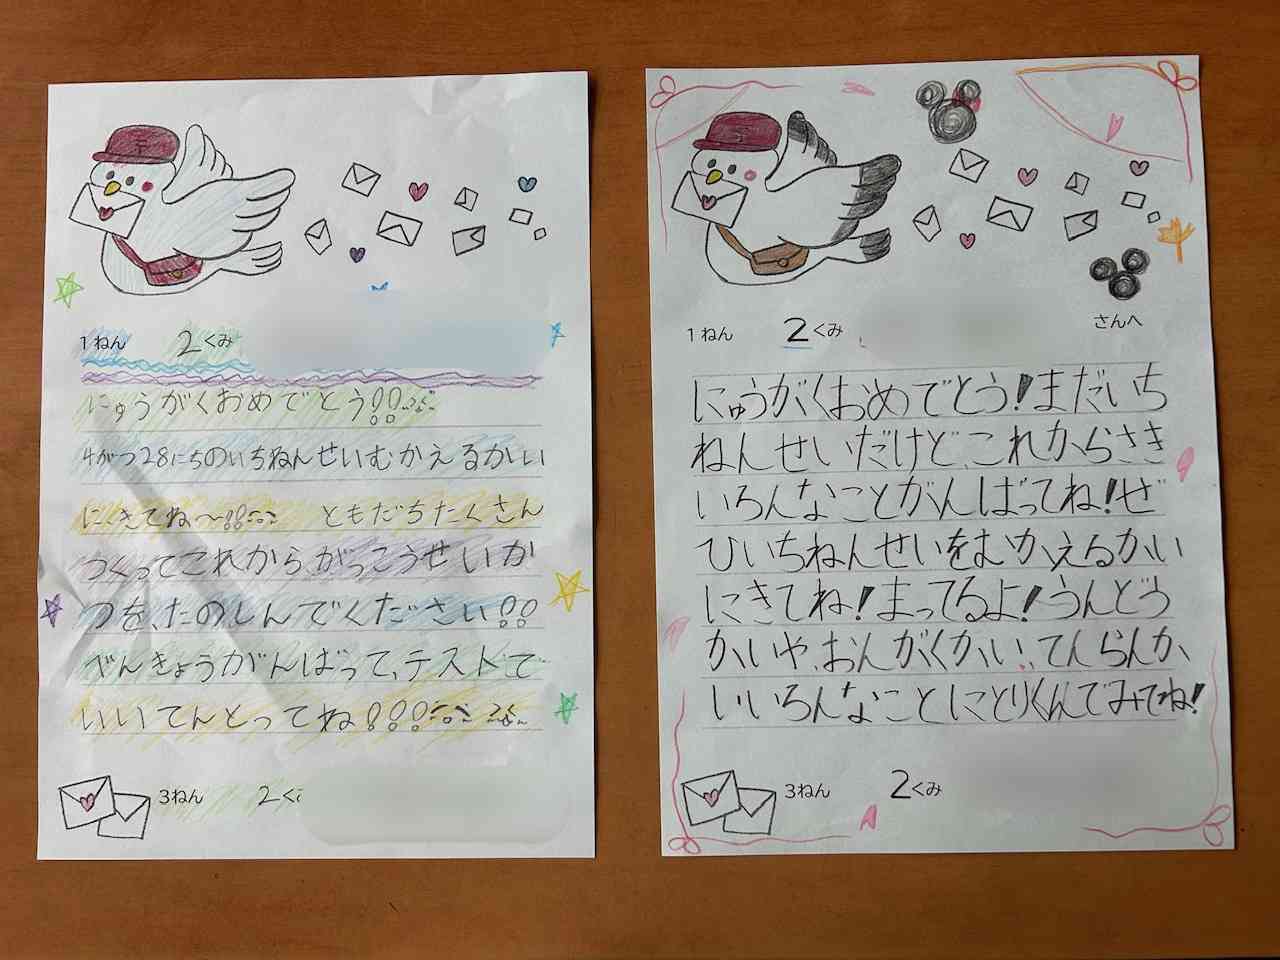 1ねん 2くみ
にゅうがくおめでとう!!
4がつ28にちのいちねんせいむかえるかい
にきてね〜!! ともだちたくさん
つくってこれからがっこうせいか
つを、たのしんでください!!
べんきょうがんばって、テストで
いいてんとってね!!!
3ねん 2く
1ねん 2くみ さんへ
にゅうがくおめでとう!まだいち
ねんせいだけど、これからさき
いろんなことがんばってね!ぜ
ひいちねんせいをむかえるかい
にきてね!まってるよ!うんどう
かいや、おんがくかい、てんらんか
いいろんなことにとりくんでみてね!
3ねん 2くみ